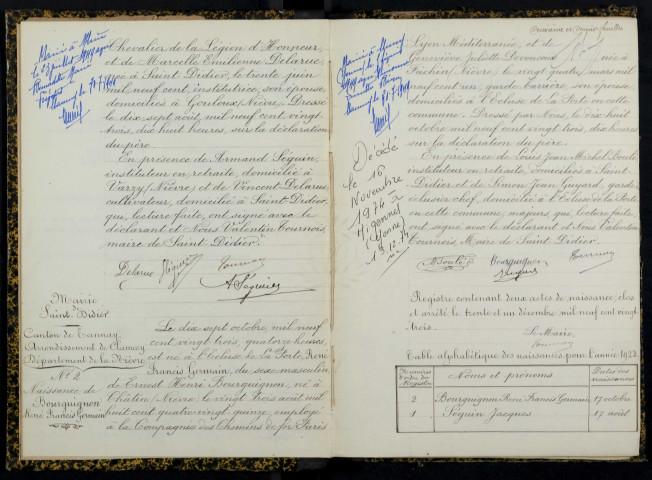 Chevalier de la Légion d'Honneur
et de Marcelle Emilienne Delarue
née à Saint Didier, le trente juin
mil neuf cent, institutrice, son épouse
domiciliés à Gouloux, Nièvre. Dressé
le dix sept août, mil neuf cent vingt
trois, dix huit heures, sur la déclaration
du père.
En présence de Armand Séguin,
instituteur en retraite, domicilié à
Varzy (Nièvre) et de Vincent Delarue
cultivateur, domicilié à Saint Didier,
qui, lecture faite, ont signé avec le
déclarant et Nous Valentin Tournois,
maire de Saint Didier.
Delarue Séguin Tournois
A Séguin
Mairie
de
Saint Didier
Canton de Tannay
Arrondissement de Clamecy
Département de la Nièvre
N° 2
Naissance de
Bourguignon
René Francis Germain
Le dix sept octobre, mil neuf
cent vingt trois, quatorze heures,
est né à l'écluse de La Porte René
Francis Germain, du sexe masculin
de Ernest Henri Bourguignon, né à
Châtin, Nièvre, le vingt trois août mil
huit cent quatre vingt quinze, employé
à la Compagnie des Chemins de fer Paris
Lyon Méditerranée, et de
Geneviève Juliette née à
(Nièvre) le vingt quatre mars mil
neuf cent un, garde barrière, son épouse
domiciliés à l'écluse de La Porte en cette
commune. Dressé par Nous, le dix huit
octobre mil neuf cent vingt trois, dix heures
sur la déclaration du père.
En présence de Louis Jean Michel Boulé
instituteur en retraite, domicilié à Saint
Didier et de Simon Jean Guyard, garde
éclusier chef, domicilié à l'écluse de la Porte
en cette commune, majeurs qui, lecture faite,
ont signé avec le déclarant et Nous Valentin
Tournois, Maire de Saint Didier.
Boulé Bourguignon Tournois
Décédé
le 16
Novembre
1974 à
Migennes
(Yonne)
Registre contenant deux actes de naissance, clos
et arrêté le trente et un décembre mil neuf cent vingt
trois.
Le Maire,
Table alphabétique des naissances pour l'année 1923.
Numéros d'ordre du Registre
Noms et prénoms
Dates des naissances
2 Bourguignon René Francis Germain 17 octobre
1 Séguin Jacques 17 août